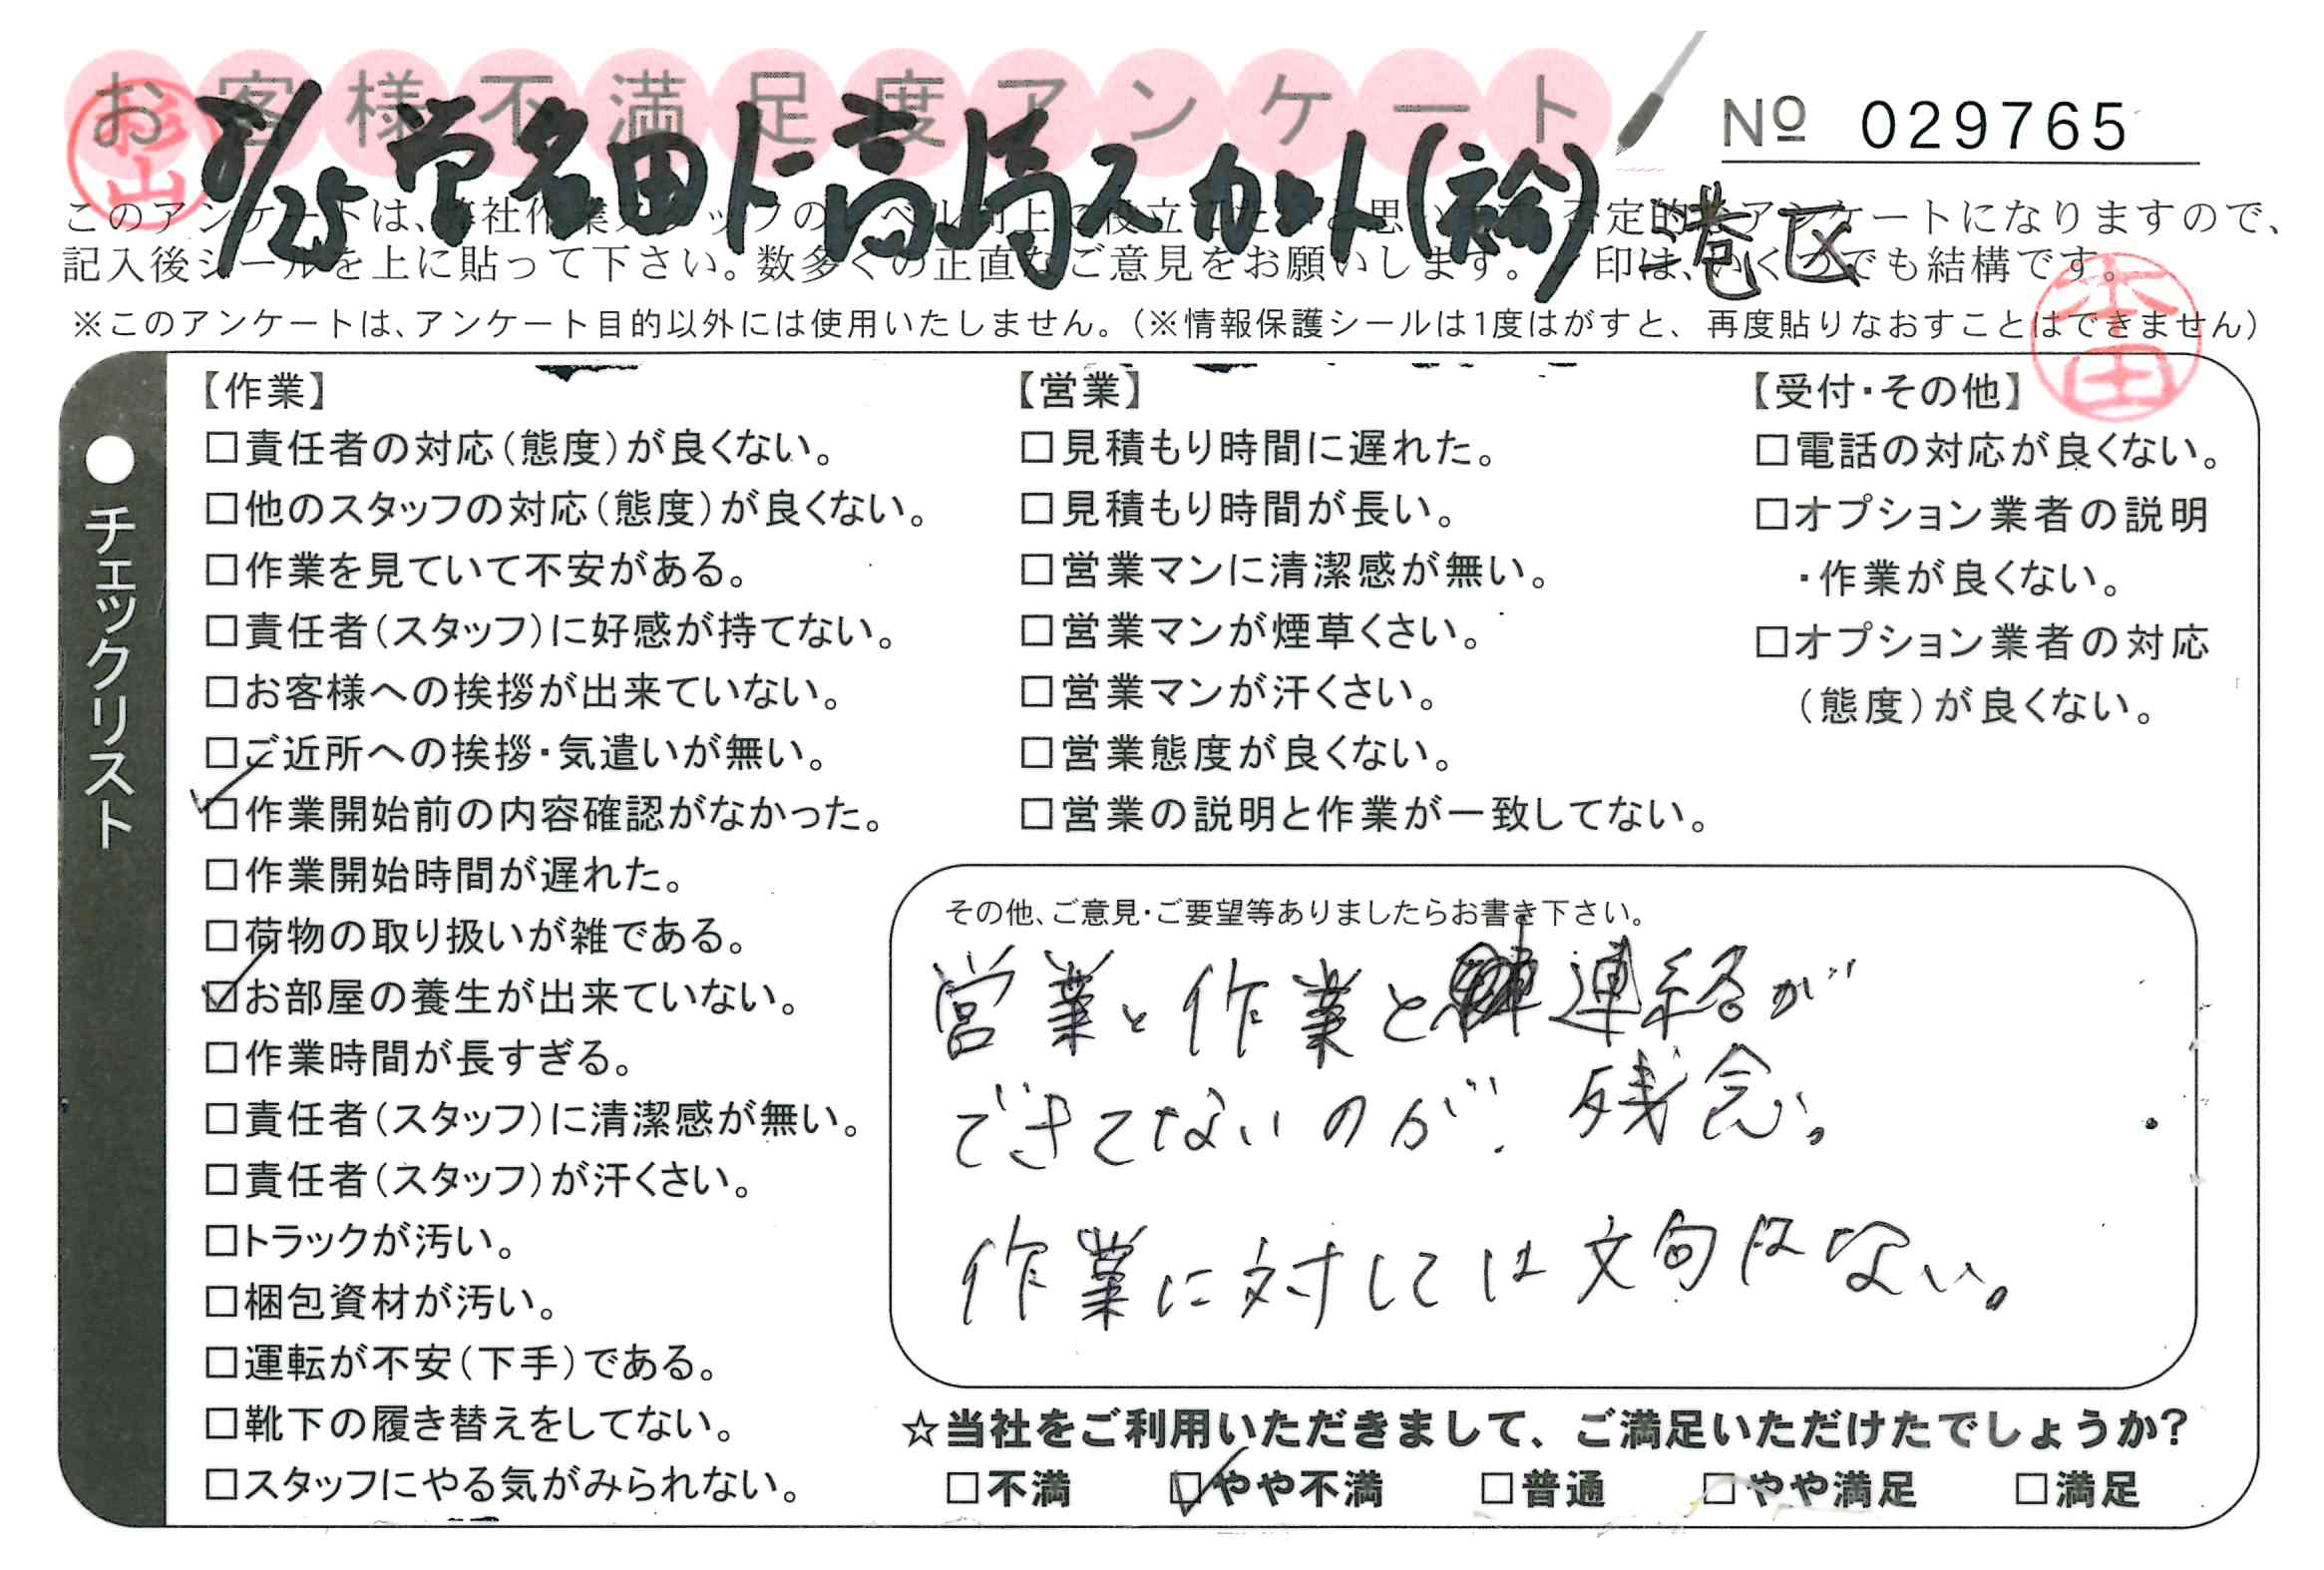 お客様不満足度アンケート
№ 029765
杉山
8/25 営名田ト高嶋スカント(裕) 港区
このアンケートは、弊社作業スタッフのレベル向上に役立てたいと思います。否定的なアンケートになりますので、
記入後シールを上に貼って下さい。数多くの正直なご意見をお願いします。 印は、いくつでも結構です。
本田
※このアンケートは、アンケート目的以外には使用いたしません。(※情報保護シールは1度はがすと、再度貼りなおすことはできません)
●チェックリスト
【作業】
□責任者の対応(態度)が良くない。
□他のスタッフの対応(態度)が良くない。
□作業を見ていて不安がある。
□責任者(スタッフ)に好感が持てない。
□お客様への挨拶が出来ていない。
□ご近所への挨拶・気遣いが無い。
☑作業開始前の内容確認がなかった。
□作業開始時間が遅れた。
□荷物の取り扱いが雑である。
☑お部屋の養生が出来ていない。
□作業時間が長すぎる。
□責任者(スタッフ)に清潔感が無い。
□責任者(スタッフ)が汗くさい。
□トラックが汚い。
□梱包資材が汚い。
□運転が不安(下手)である。
□靴下の履き替えをしてない。
□スタッフにやる気がみられない。
【営業】
□見積もり時間に遅れた。
□見積もり時間が長い。
□営業マンに清潔感が無い。
□営業マンが煙草くさい。
□営業マンが汗くさい。
□営業態度が良くない。
□営業の説明と作業が一致してない。
【受付・その他】
□電話の対応が良くない。
□オプション業者の説明
・作業が良くない。
□オプション業者の対応
(態度)が良くない。
その他、ご意見・ご要望等ありましたらお書き下さい。
営業と作業と連絡が
できてないのが、残念。
作業に対しては文句はない。
☆当社をご利用いただきまして、ご満足いただけたでしょうか?
□不満 ☑やや不満 □普通 □やや満足 □満足